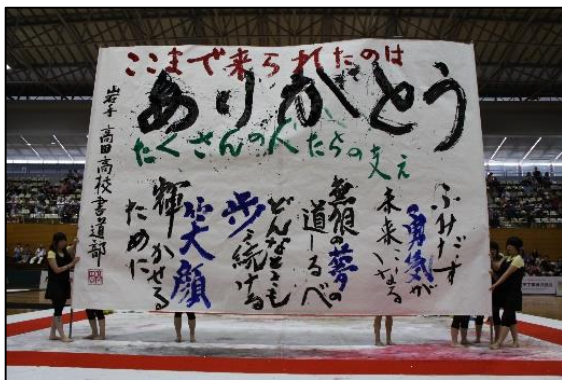 ここまで来られたのは
ありがとう
たくさんの人たちの支え
ふみだす
勇気が
未来になる
無限の夢の
道しるべ
どんなときも
歩き続ける
笑顔
輝かせる
ために
岩手 高田高校書道部